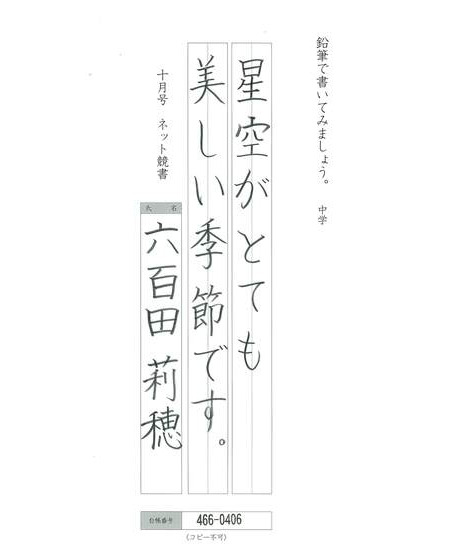 鉛筆で書いてみましょう。 中学
星空がとても
美しい季節です。
十月号 ネット競書
氏 名
六百田莉穂
台帳番号 466-0406
(コピー不可)